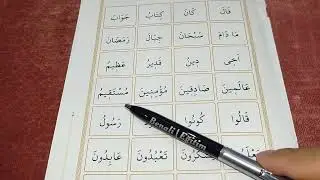 قَالَ كَانَ كِتَابُ جَوَابَ
مَا دَامَ سُبْحَانَ حِبَالَ رَمَضَانَ
أَخِى دِينُ قَدِيرُ عَظِيمُ
عَالَمِينَ صَادِقِينَ مُؤْمِنِينَ مُسْتَقِيمُ
قَالُوا كُونُوا رَسُولُ
تَعْبُدُونَ عَابِدُونَ
Bengali Eğitim